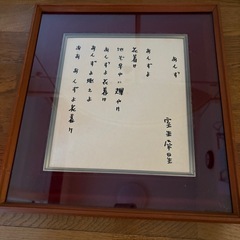 あんず
室生犀星
あんずよ
花着け
地ぞ早やに輝やけ
あんずよ花着け
あんずよ燃えよ
ああ あんずよ花着け